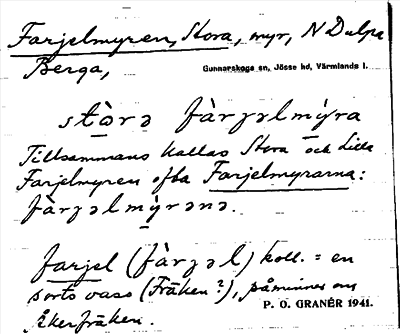 Farjelmyren, Stora, myr, N Dalpe
Berga,
Gunnarskogs sn, Jösse hd, Värmlands l.
stòrə fàrjəlmýra
Tillsammans kallas Stora och Lilla
Farjelmyren ofta Farjelmyrarna:
fàrjəlmýrənə.
farjel (fàrjəl) koll. = en
sorts vass (Fräken?), påminner om
åkerfräken.
P. O. GRANÉR 1941.